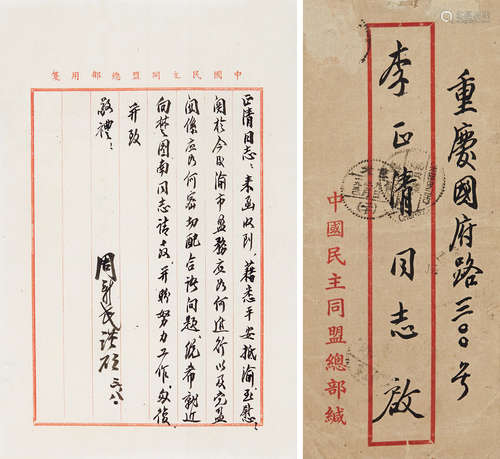 中國民主同盟總部用箋
正清同志：来函收到，藉悉平安抵渝，至慰；
關於今後渝市盟務應如何進行以及党盟
關係應如何密切配合諸問題，統希就近
向楚图南同志請教，并盼努力工作。匆復，
并致
敬禮！
周新民謹啟 三、八、
重慶國府路三〇〇号
李正清同志啟
中國民主同盟總部緘